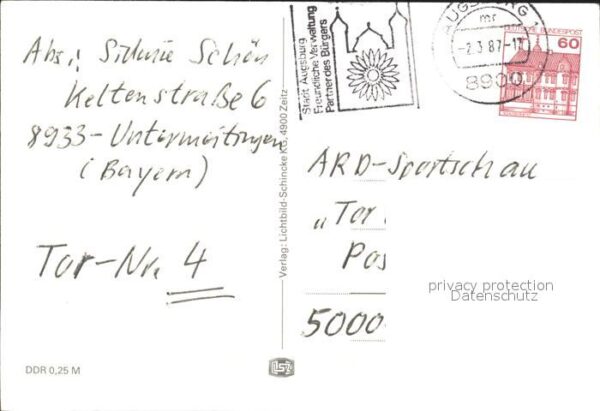 Abs.: Sidonie Schön
Keltenstraße 6
8933-Untermeitingen
(Bayern)
Tor-Nr. 4
DDR 0,25 M
Verlag: Lichtbild-Schincke KG, 4900 Zeitz
Stadt Augsburg
Freundliche Verwaltung
Partner des Bürgers
AUGSBURG 1
mr
-2.3.87-17
8900
DEUTSCHE BUNDESPOST
60
ARD-Sportschau
„Tor
Pos
5000
privacy protection
Datenschutz